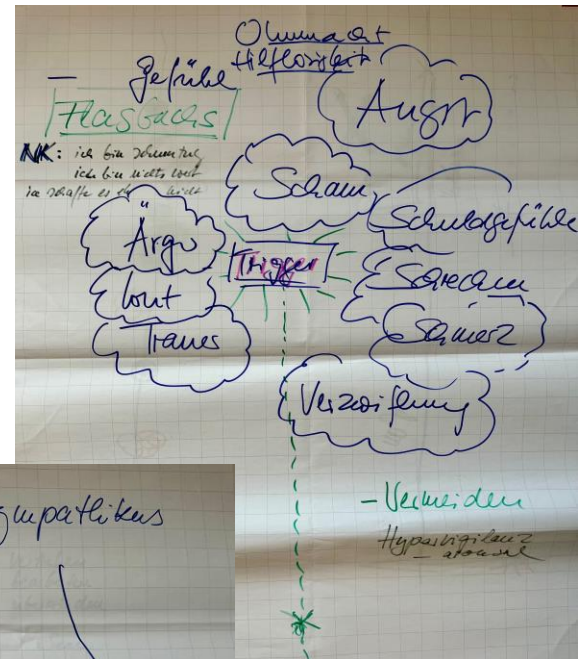 Ohnmacht
Hilflosigkeit
– Gefühle
Angst
Flasbacks
NK: ich bin schmutzig
ich bin nichts wert
ich schaffe es eh nicht
Scham
Schuldgefühle
Ärger
Trigger
Schrecken
Wut
Schmerz
Trauer
Verzweiflung
– Vermeiden
Hypervigilanz
– arousal
ympathikus